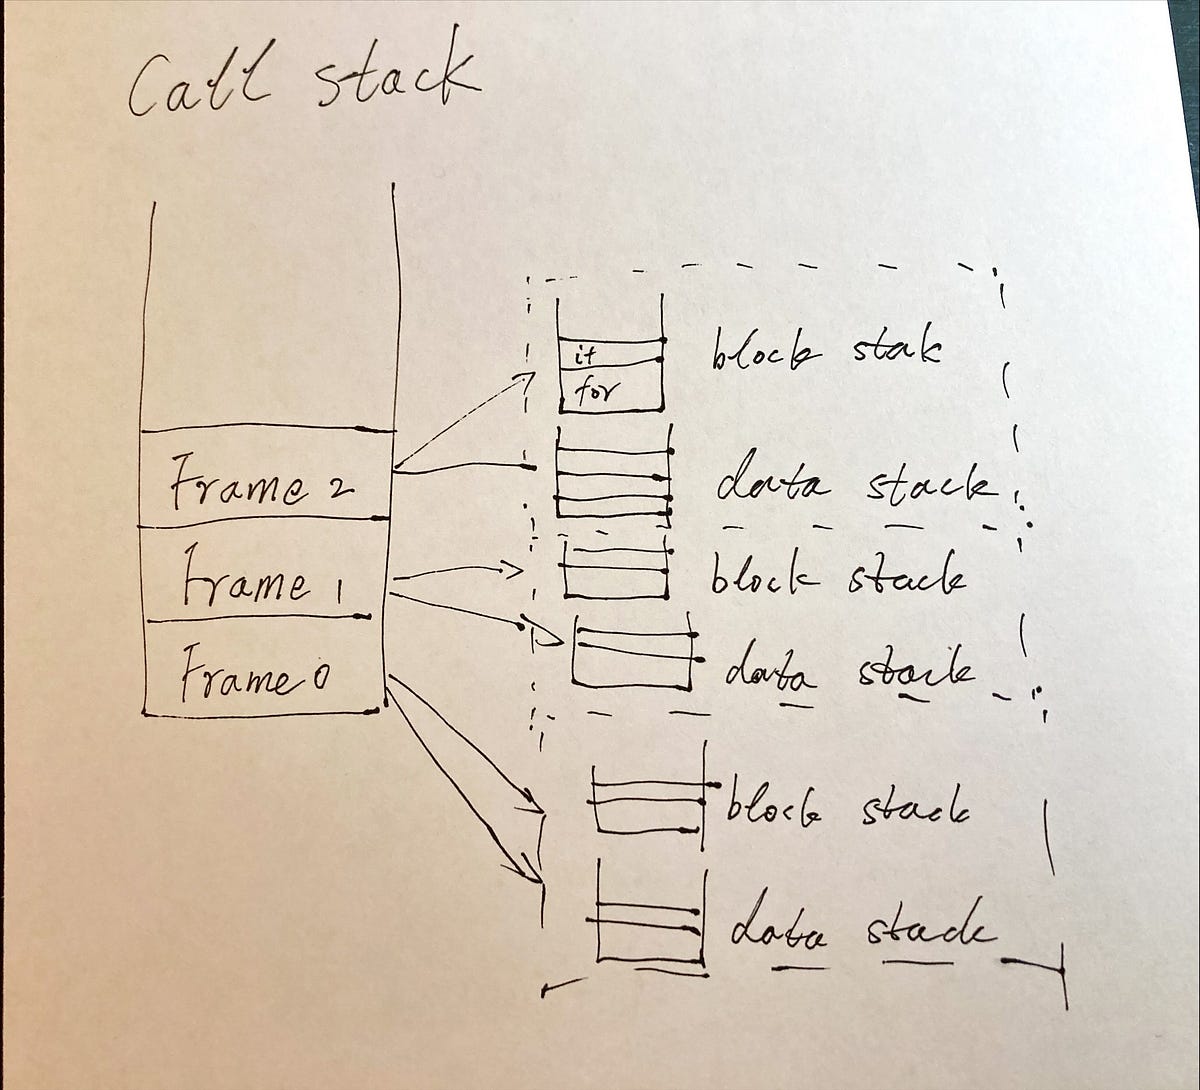 Call stack
it
for
block stak
Frame 2
data stack
Frame 1
block stack
Frame 0
data stack
block stack
data stack